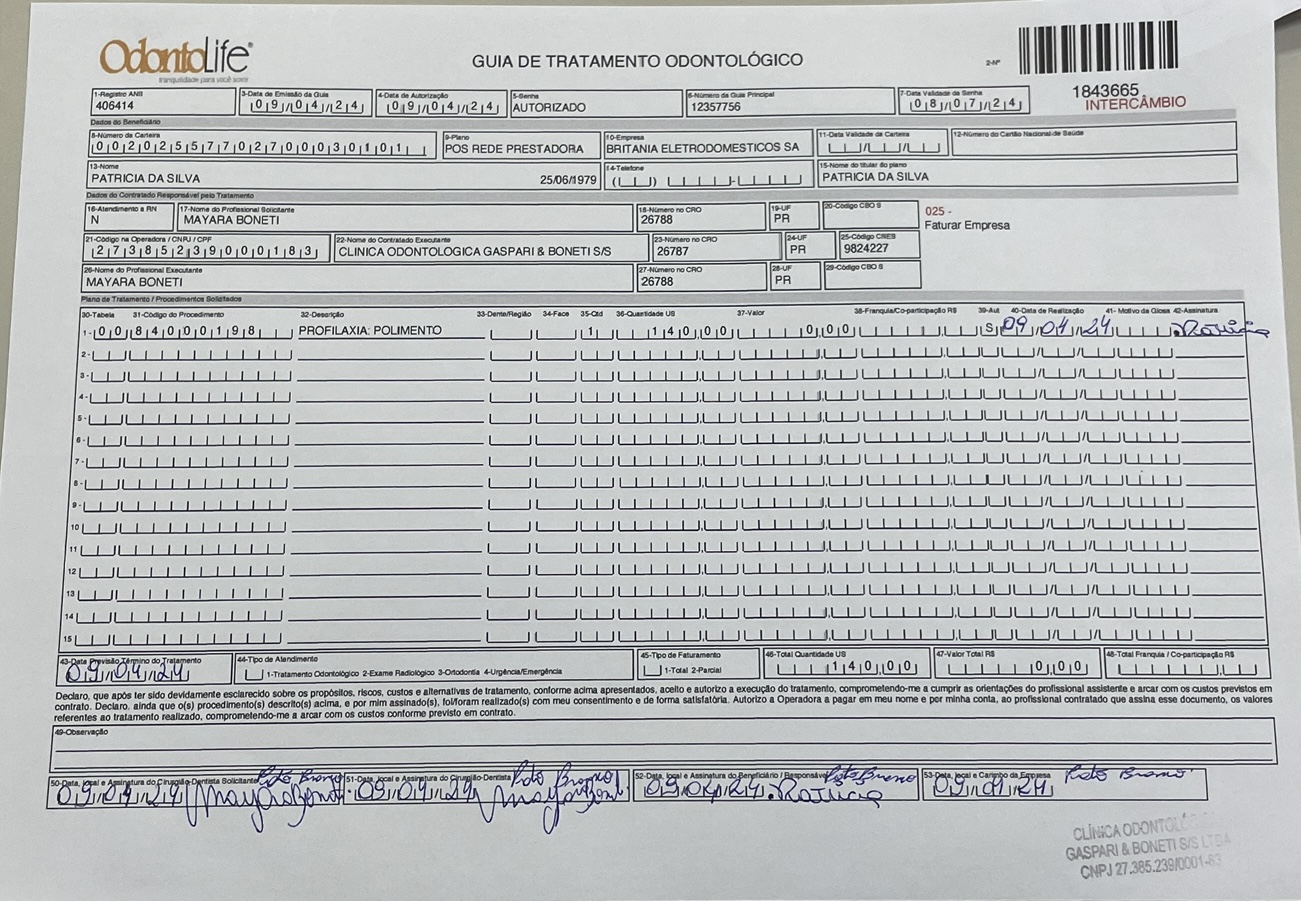 OdontoLife®
tranquilidade para você sorrir
GUIA DE TRATAMENTO ODONTOLÓGICO
2-Nº
1843665
INTERCÂMBIO
1-Registro ANS
406414
3-Data de Emissão da Guia
09/04/24
4-Data de Autorização
09/04/24
5-Senha
AUTORIZADO
6-Número da Guia Principal
12357756
7-Data Validade da Senha
08/07/24
Dados do Beneficiário
8-Número da Carteira
00202557702700030101
9-Plano
POS REDE PRESTADORA
10-Empresa
BRITANIA ELETRODOMESTICOS SA
11-Data Validade da Carteira
12-Número do Cartão Nacional de Saúde
13-Nome
PATRICIA DA SILVA 25/06/1979
14-Telefone
15-Nome do titular do plano
PATRICIA DA SILVA
Dados do Contratado Responsável pelo Tratamento
16-Atendimento a RN
N
17-Nome do Profissional Solicitante
MAYARA BONETI
18-Número no CRO
26788
19-UF
PR
20-Código CBO S
025 -
Faturar Empresa
21-Código na Operadora / CNPJ / CPF
27385239000183
22-Nome do Contratado Executante
CLINICA ODONTOLOGICA GASPARI & BONETI S/S
23-Número no CRO
26787
24-UF
PR
25-Código CNES
9824227
26-Nome do Profissional Executante
MAYARA BONETI
27-Número no CRO
26788
28-UF
PR
29-Código CBO S
Plano de Tratamento / Procedimentos Solicitados
30-Tabela 31-Código do Procedimento 32-Descrição 33-Dente/Região 34-Face 35-Qtd 36-Quantidade US 37-Valor 38-Franquia/Co-participação R$ 39-Aut 40-Data de Realização 41- Motivo da Glosa 42-Assinatura
1- 00 84000198 PROFILAXIA: POLIMENTO 1 140,00 0,00 S 09 04 24 Patricia
2-
3-
4-
5-
6-
7-
8-
9-
10
11
12
13
14
15
43-Data Previsão Término do Tratamento
09/04/24
44-Tipo de Atendimento
1-Tratamento Odontológico 2-Exame Radiológico 3-Ortodontia 4-Urgência/Emergência
45-Tipo de Faturamento
1-Total 2-Parcial
46-Total Quantidade US
140,00
47-Valor Total R$
0,00
48-Total Franquia / Co-participação R$
Declaro, que após ter sido devidamente esclarecido sobre os propósitos, riscos, custos e alternativas de tratamento, conforme acima apresentados, aceito e autorizo a execução do tratamento, comprometendo-me a cumprir as orientações do profissional assistente e arcar com os custos previstos em
contrato. Declaro, ainda que o(s) procedimento(s) descrito(s) acima, e por mim assinado(s), foi/foram realizado(s) com meu consentimento e de forma satisfatória. Autorizo a Operadora a pagar em meu nome e por minha conta, ao profissional contratado que assina esse documento, os valores
referentes ao tratamento realizado, comprometendo-me a arcar com os custos conforme previsto em contrato.
49-Observação
50-Data, local e Assinatura do Cirurgião-Dentista Solicitante
09/04/24 Pato Branco Mayara Boneti
51-Data, local e Assinatura do Cirurgião-Dentista
09/04/24 Pato Branco Mayara Boneti
52-Data, local e Assinatura do Beneficiário / Responsável
09/04/24 Pato Branco Patricia
53-Data, local e Carimbo da Empresa
09/04/24 Pato Branco
CLÍNICA ODONTOLÓGICA
GASPARI & BONETI S/S LTDA
CNPJ 27.385.239/0001-83